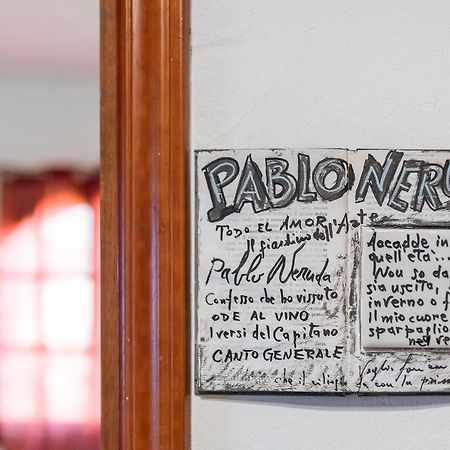 PABLO NERU
TODO EL AMOR
Il giardino dell'Arte
Pablo Neruda
Confesso che ho vissuto
ODE AL VINO
I versi del Capitano
CANTO GENERALE
Accadde in
quell'età...
Non so da
sia uscita,
inverno o f
il mio cuore
sparpaglio
nel ve
che il ciliegi
con la prim